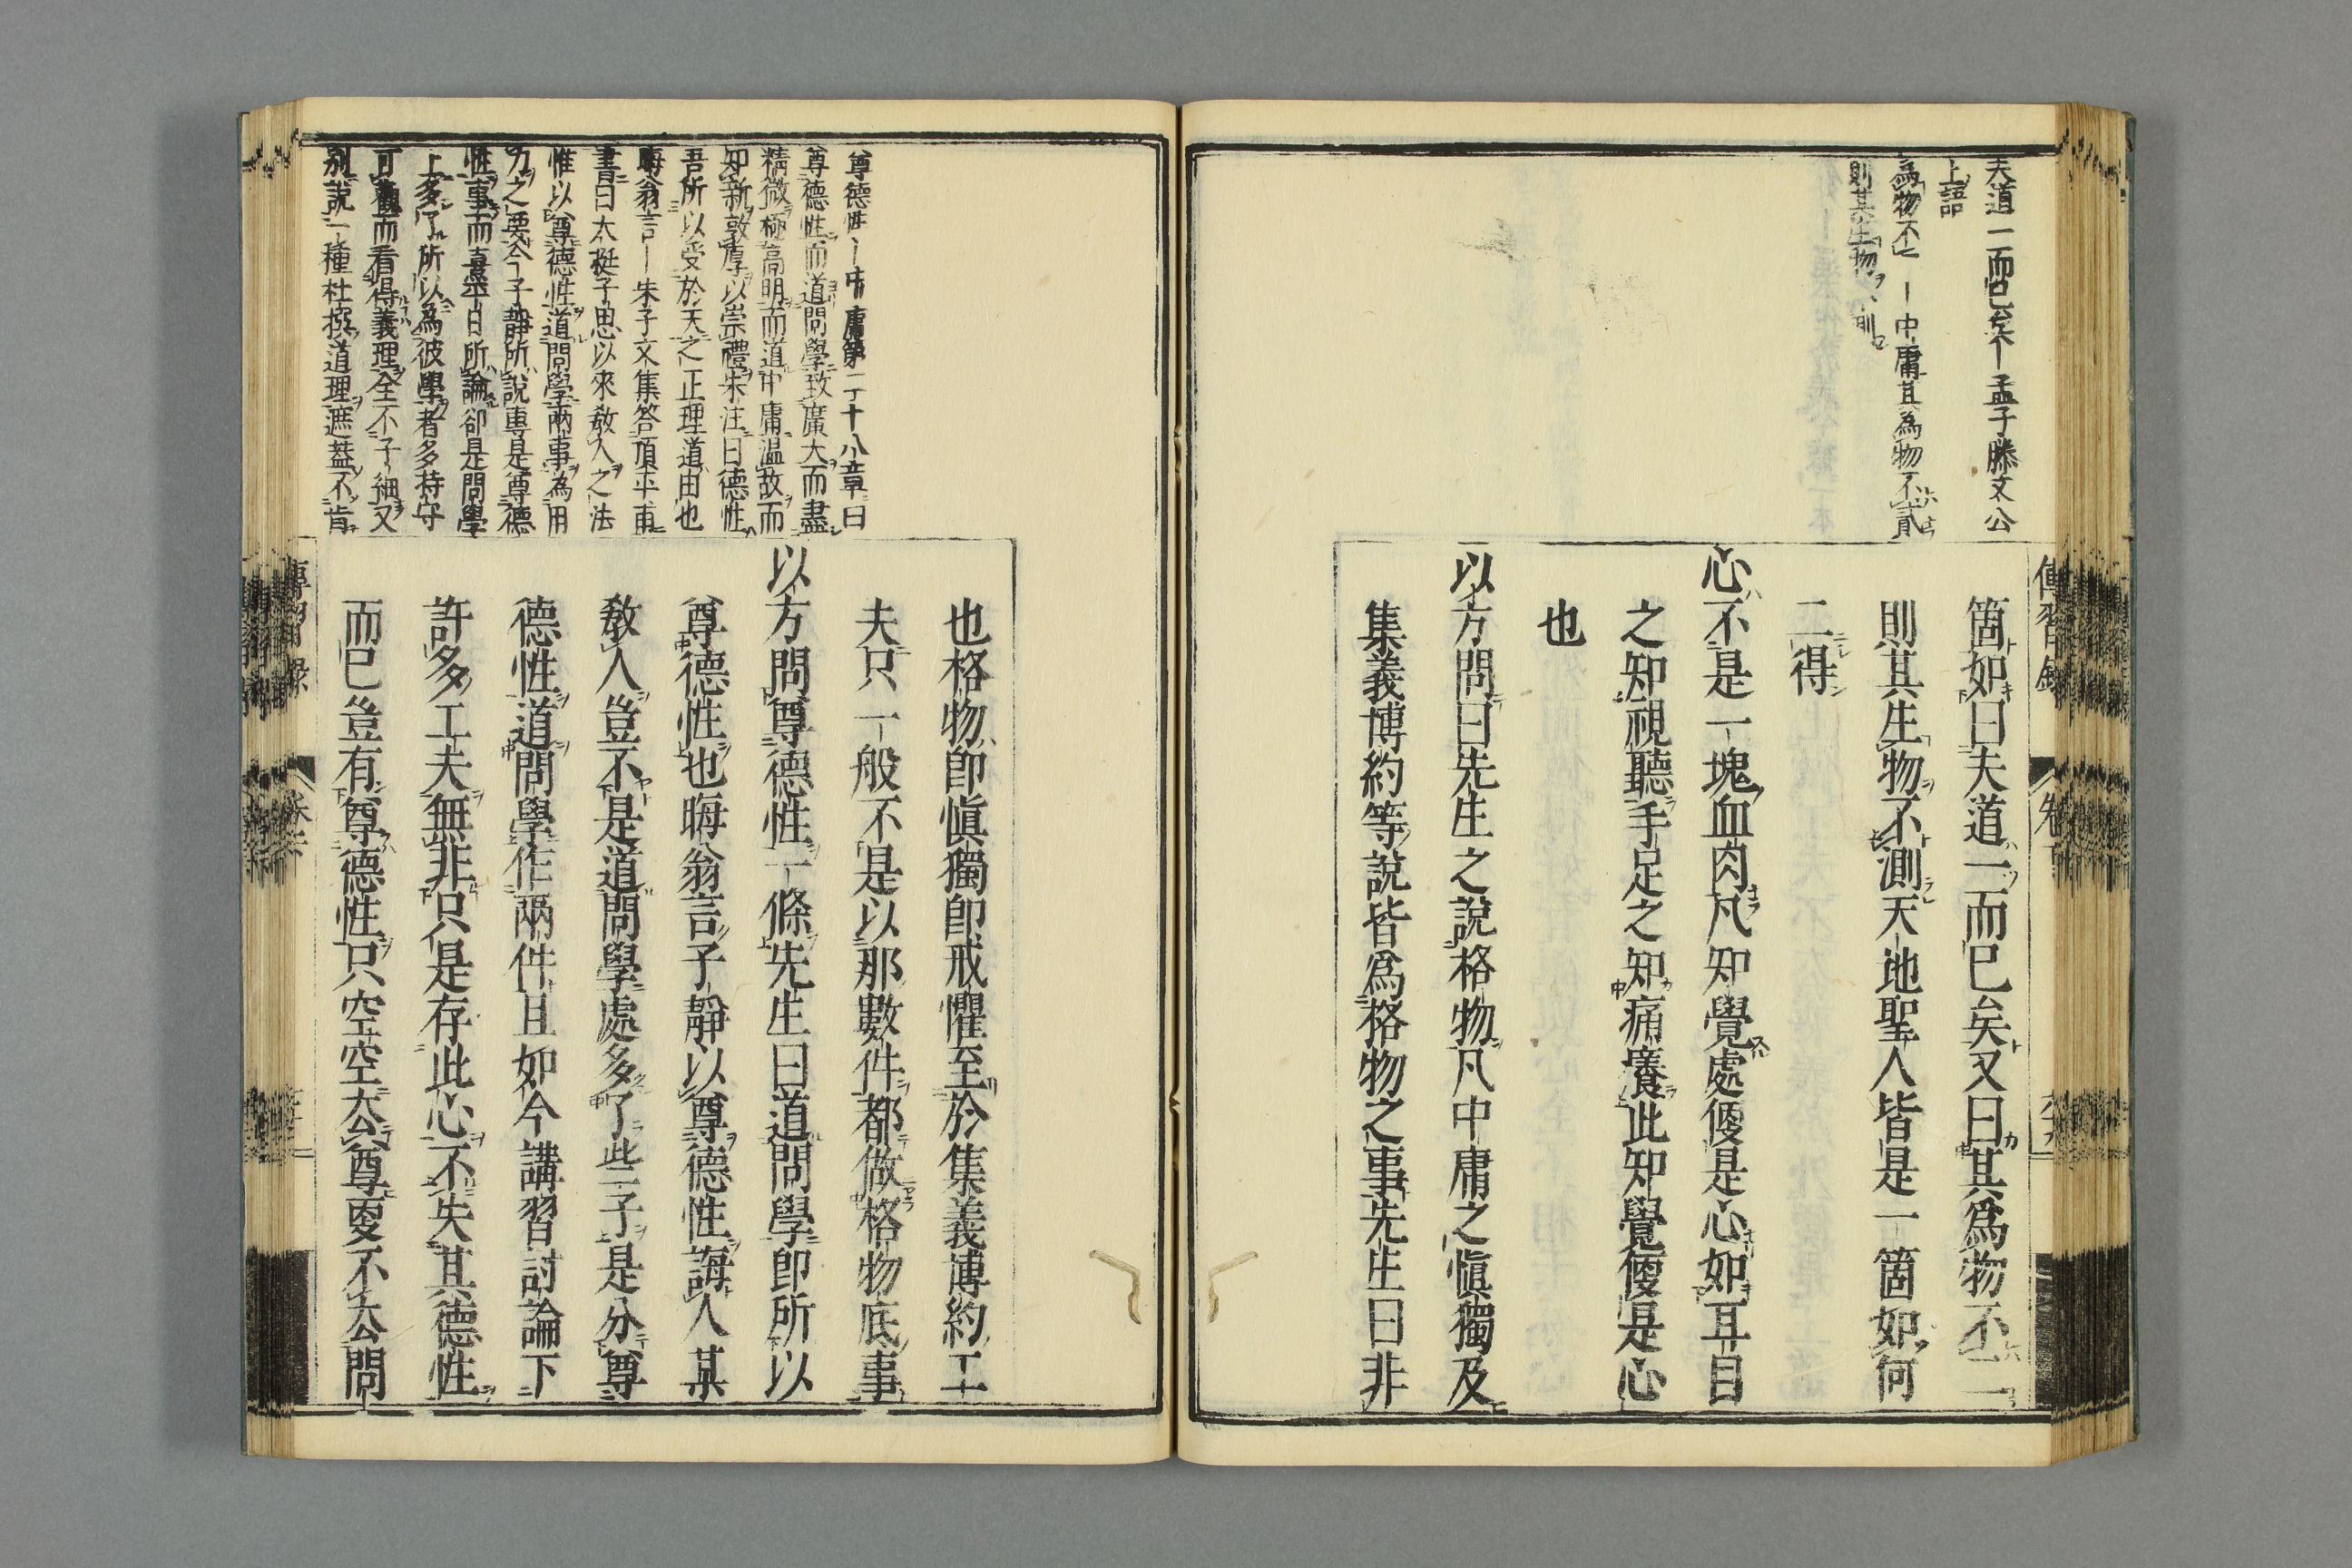 夫道一而已矣－孟子滕文公
上語
為物不－中庸其為物不貳
則其生物、則
傳習錄
箇如曰夫道一而已矣又曰其爲物不二
則其生物不測天地聖人皆是一箇如何
二得
心不是一塊血肉凡知覺處便是心如耳目
之知視聽手足之知痛癢此知覺便是心
也
以方問曰先生之說格物凡中庸之愼獨及
集義博約等說皆爲格物之事先生曰非
尊德性－中庸第二十八章曰
尊德性而道問學致廣大而盡
精微極高明而道中庸溫故而
知新敦厚以崇禮朱注曰德性
吾所以受於天之正理道由也
晦翁言－朱子文集答項平甫
書曰大抵子思以來教人之法
惟以尊德性道問學兩事為用
力之要今子靜所說專是尊德
性事而熹平日所論卻是問學
上多了所以為彼學者多持守
可觀而看得義理全不子細又
別說一種杜撰道理遮蓋不肯
也格物卽愼獨卽戒懼至於集義博約工
夫只一般不是以那數件都做格物底事
以方問尊德性一條先生曰道問學卽所以
尊德性也晦翁言子靜以尊德性誨人某
敎人豈不是道問學處多了些子是分尊
德性道問學作兩件且如今講習討論下
許多工夫無非只是存此心不失其德性
而已豈有尊德性只空空去尊更不去問
傳習錄